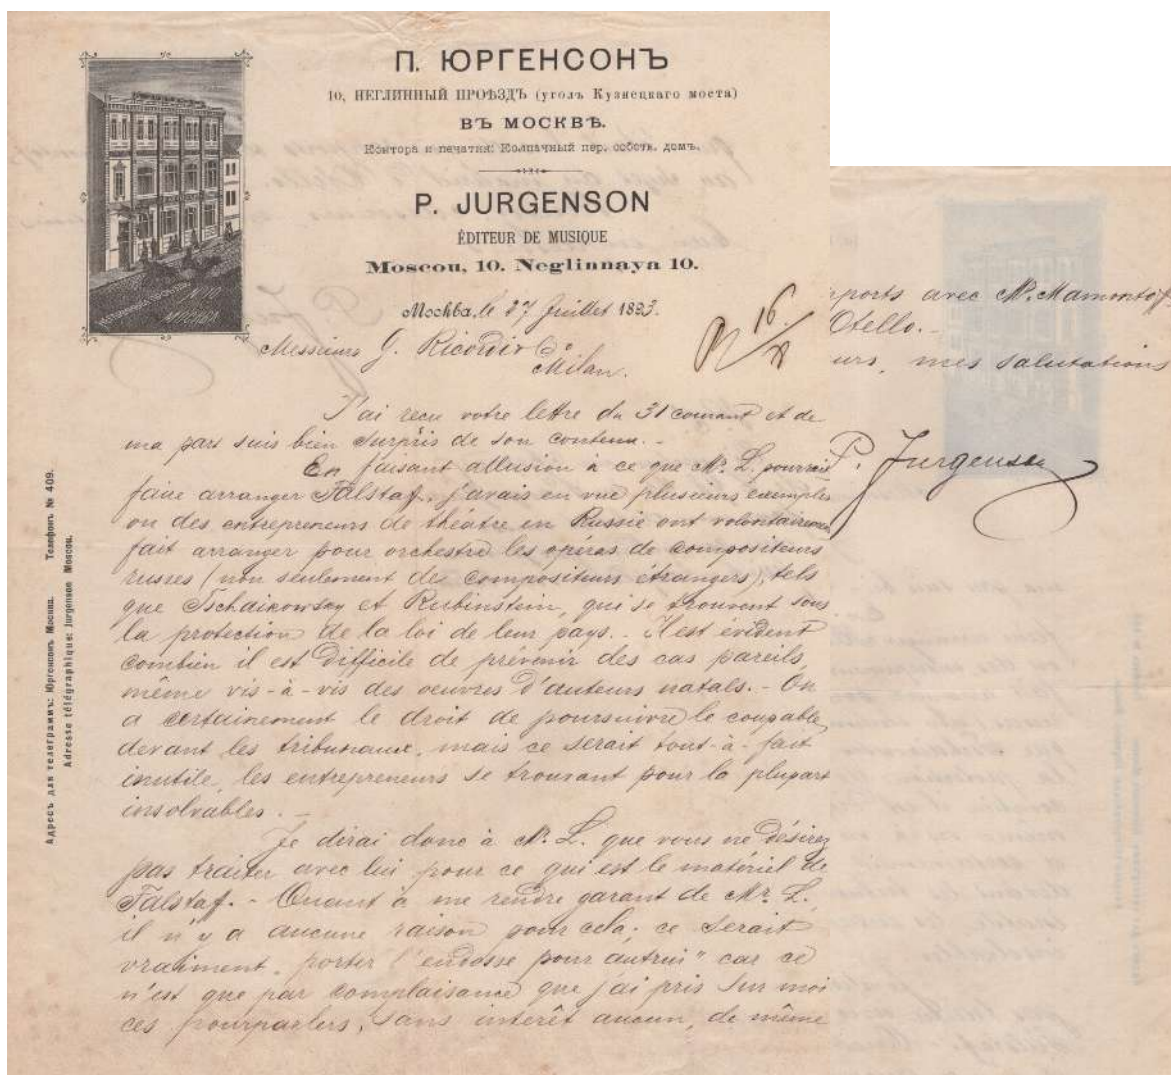 П. ЮРГЕНСОНЪ
10, НЕГЛИННЫЙ ПРОѢЗДЪ (уголъ Кузнецкаго моста)
ВЪ МОСКВѢ.
Контора и печатня: Колпачный пер. собств. домъ.
P. JURGENSON
ÉDITEUR DE MUSIQUE
Moscou, 10. Neglinnaya 10.
Москва, le 27 Juillet 1893.
Messieurs G. Ricordi & Co
Milan.
J'ai recu votre lettre du 31 courant et de
ma part suis bien surpris de son contenu. -
En faisant allusion à ce que Mr. L. pourrait
faire arranger Falstaf, j'avais en vue plusieurs exemples
ou des entrepreneurs de théatre en Russie ont volontairement
fait arranger pour orchestre les opéras de compositeurs
russes (non seulement de compositeurs étrangers), tels
que Tschaikowsky et Rubinstein, qui se trouvent sous
la protection de la loi de leur pays. - Il est évident
combien il est difficile de prévenir des cas pareils,
même vis-à-vis des oeuvres d'auteurs natals. - On
a certainement le droit de poursuivre le coupable
devant les tribunaux, mais ce serait tout-à-fait
inutile, les entrepreneurs se trouvant pour la plupart
insolvables. -
Je dirai donc à Mr. L. que vous ne désirez
pas traiter avec lui pour ce qui est le matériel de
Falstaf. - Quant à me rendre garant de Mr. L.
il n'y a aucune raison pour cela; ce serait
vraiment „porter l'endosse pour autrui" car ce
n'est que par complaisance que j'ai pris sur moi
ces pourparlers, sans intérêt aucun, de même
Адресъ для телеграммъ: Юргенсонъ Москва. Телефонъ № 409.
Adresse télégraphique: Jurgenson Moscou.
НЕГЛИННЫЙ ПРОѢЗДЪ №10
МОСКВА
16/8
pports avec Mr. Mamontof
Otello. -
urs, mes salutations
P. Jurgenson